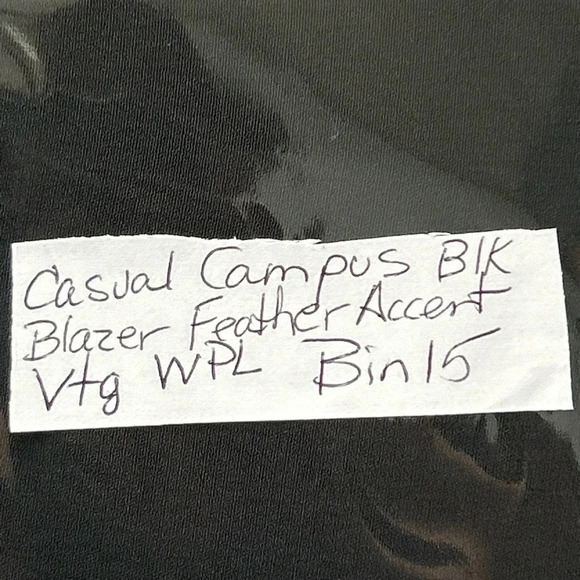 Casual Campus Blk
Blazer Feather Accent
Vtg WPL Bin 15